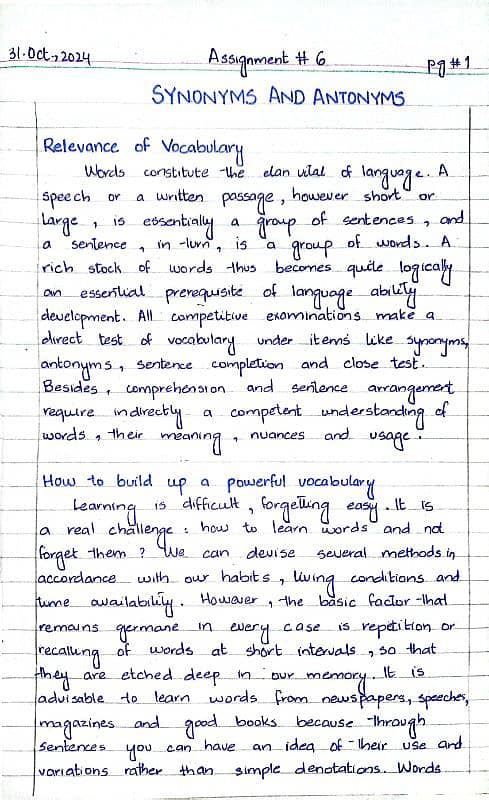 31.Oct, 2024
Assignment # 6
Pg # 1
SYNONYMS AND ANTONYMS
Relevance of Vocabulary
Words constitute the elan vital of language. A
speech or a written passage, however short or
large, is essentially a group of sentences, and
a sentence, in turn, is a group of words. A
rich stock of words thus becomes quite logically
an essential prerequisite of language ability
development. All competitive examinations make a
direct test of vocabulary under items like synonyms,
antonyms, sentence completion and close test.
Besides, comprehension and sentence arrangement
require indirectly a competent understanding of
words, their meaning, nuances and usage.
How to build up a powerful vocabulary
Learning is difficult, forgetting easy. It is
a real challenge : how to learn words and not
forget them ? We can devise several methods in
accordance with our habits, living conditions and
time availability. However, the basic factor that
remains germane in every case is repetition or
recalling of words at short intervals, so that
they are etched deep in our memory. It is
advisable to learn words from newspapers, speeches,
magazines and good books because through
sentences you can have an idea of their use and
variations rather than simple denotations. Words